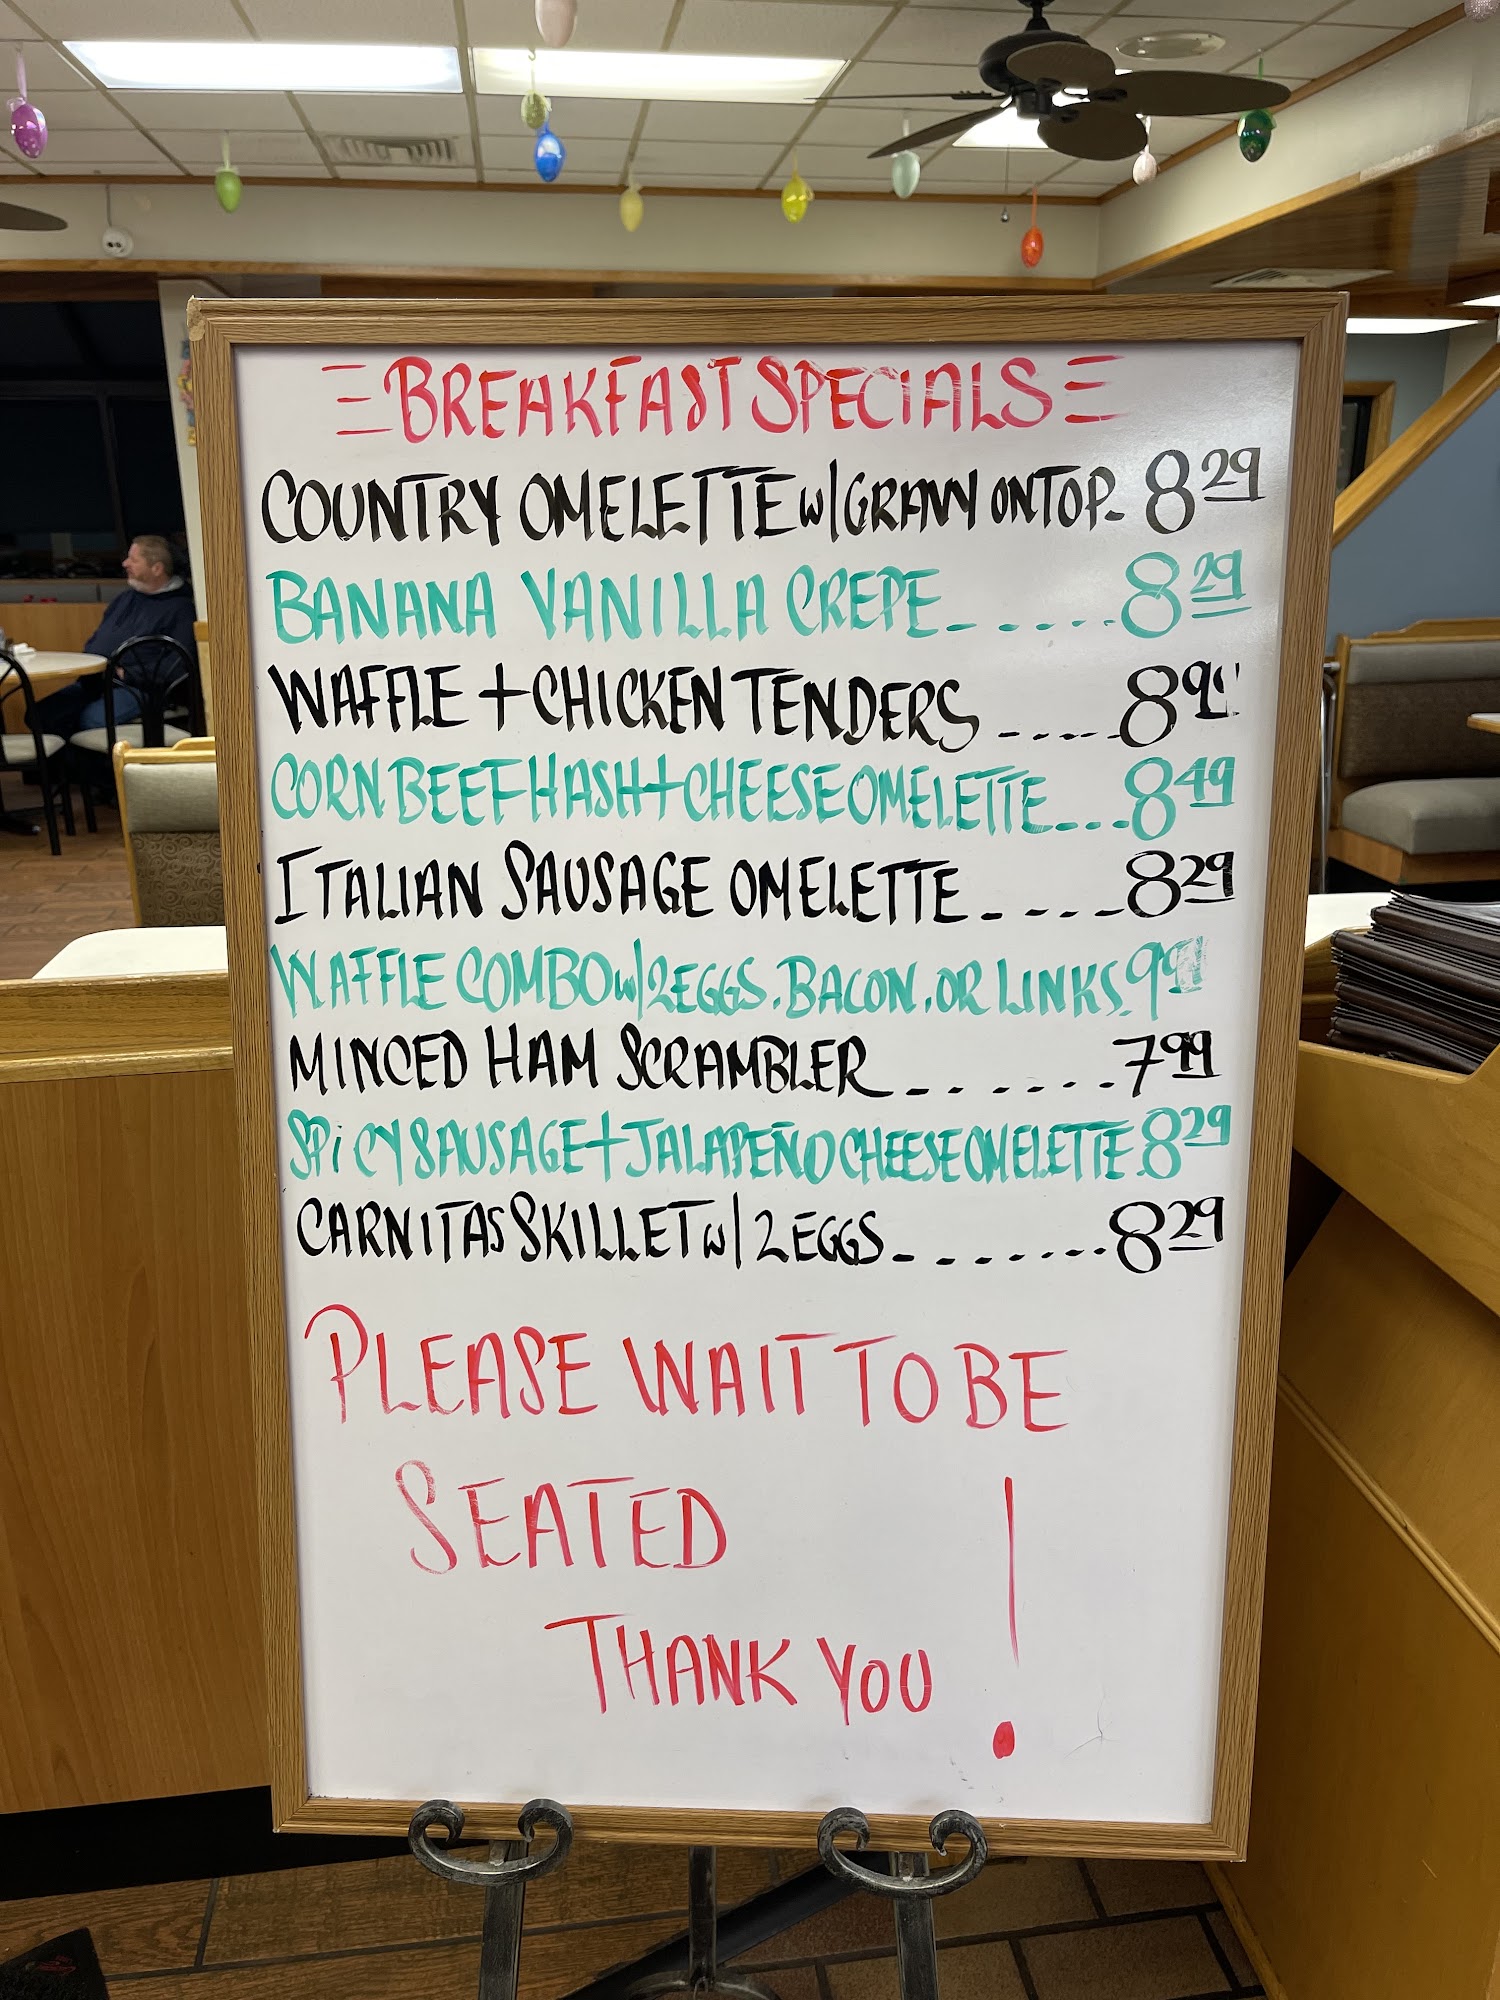 BREAKFAST SPECIALS
COUNTRY OMELETTE w/ GRAVY ON TOP - 8 29
BANANA VANILLA CREPE ------ 8 29
WAFFLE + CHICKEN TENDERS ----- 8
CORN BEEF HASH + CHEESE OMELETTE --- 8 49
ITALIAN SAUSAGE OMELETTE ---- 8 29
WAFFLE COMBO w/ 2 EGGS. BACON. OR LINKS. 9
MINCED HAM SCRAMBLER ------- 7 99
SPiCY SAUSAGE + JALAPEÑO CHEESE OMELETTE. 8 29
CARNITAS SKILLET w/ 2 EGGS -------- 8 29
PLEASE WAIT TO BE
SEATED
THANK YOU !